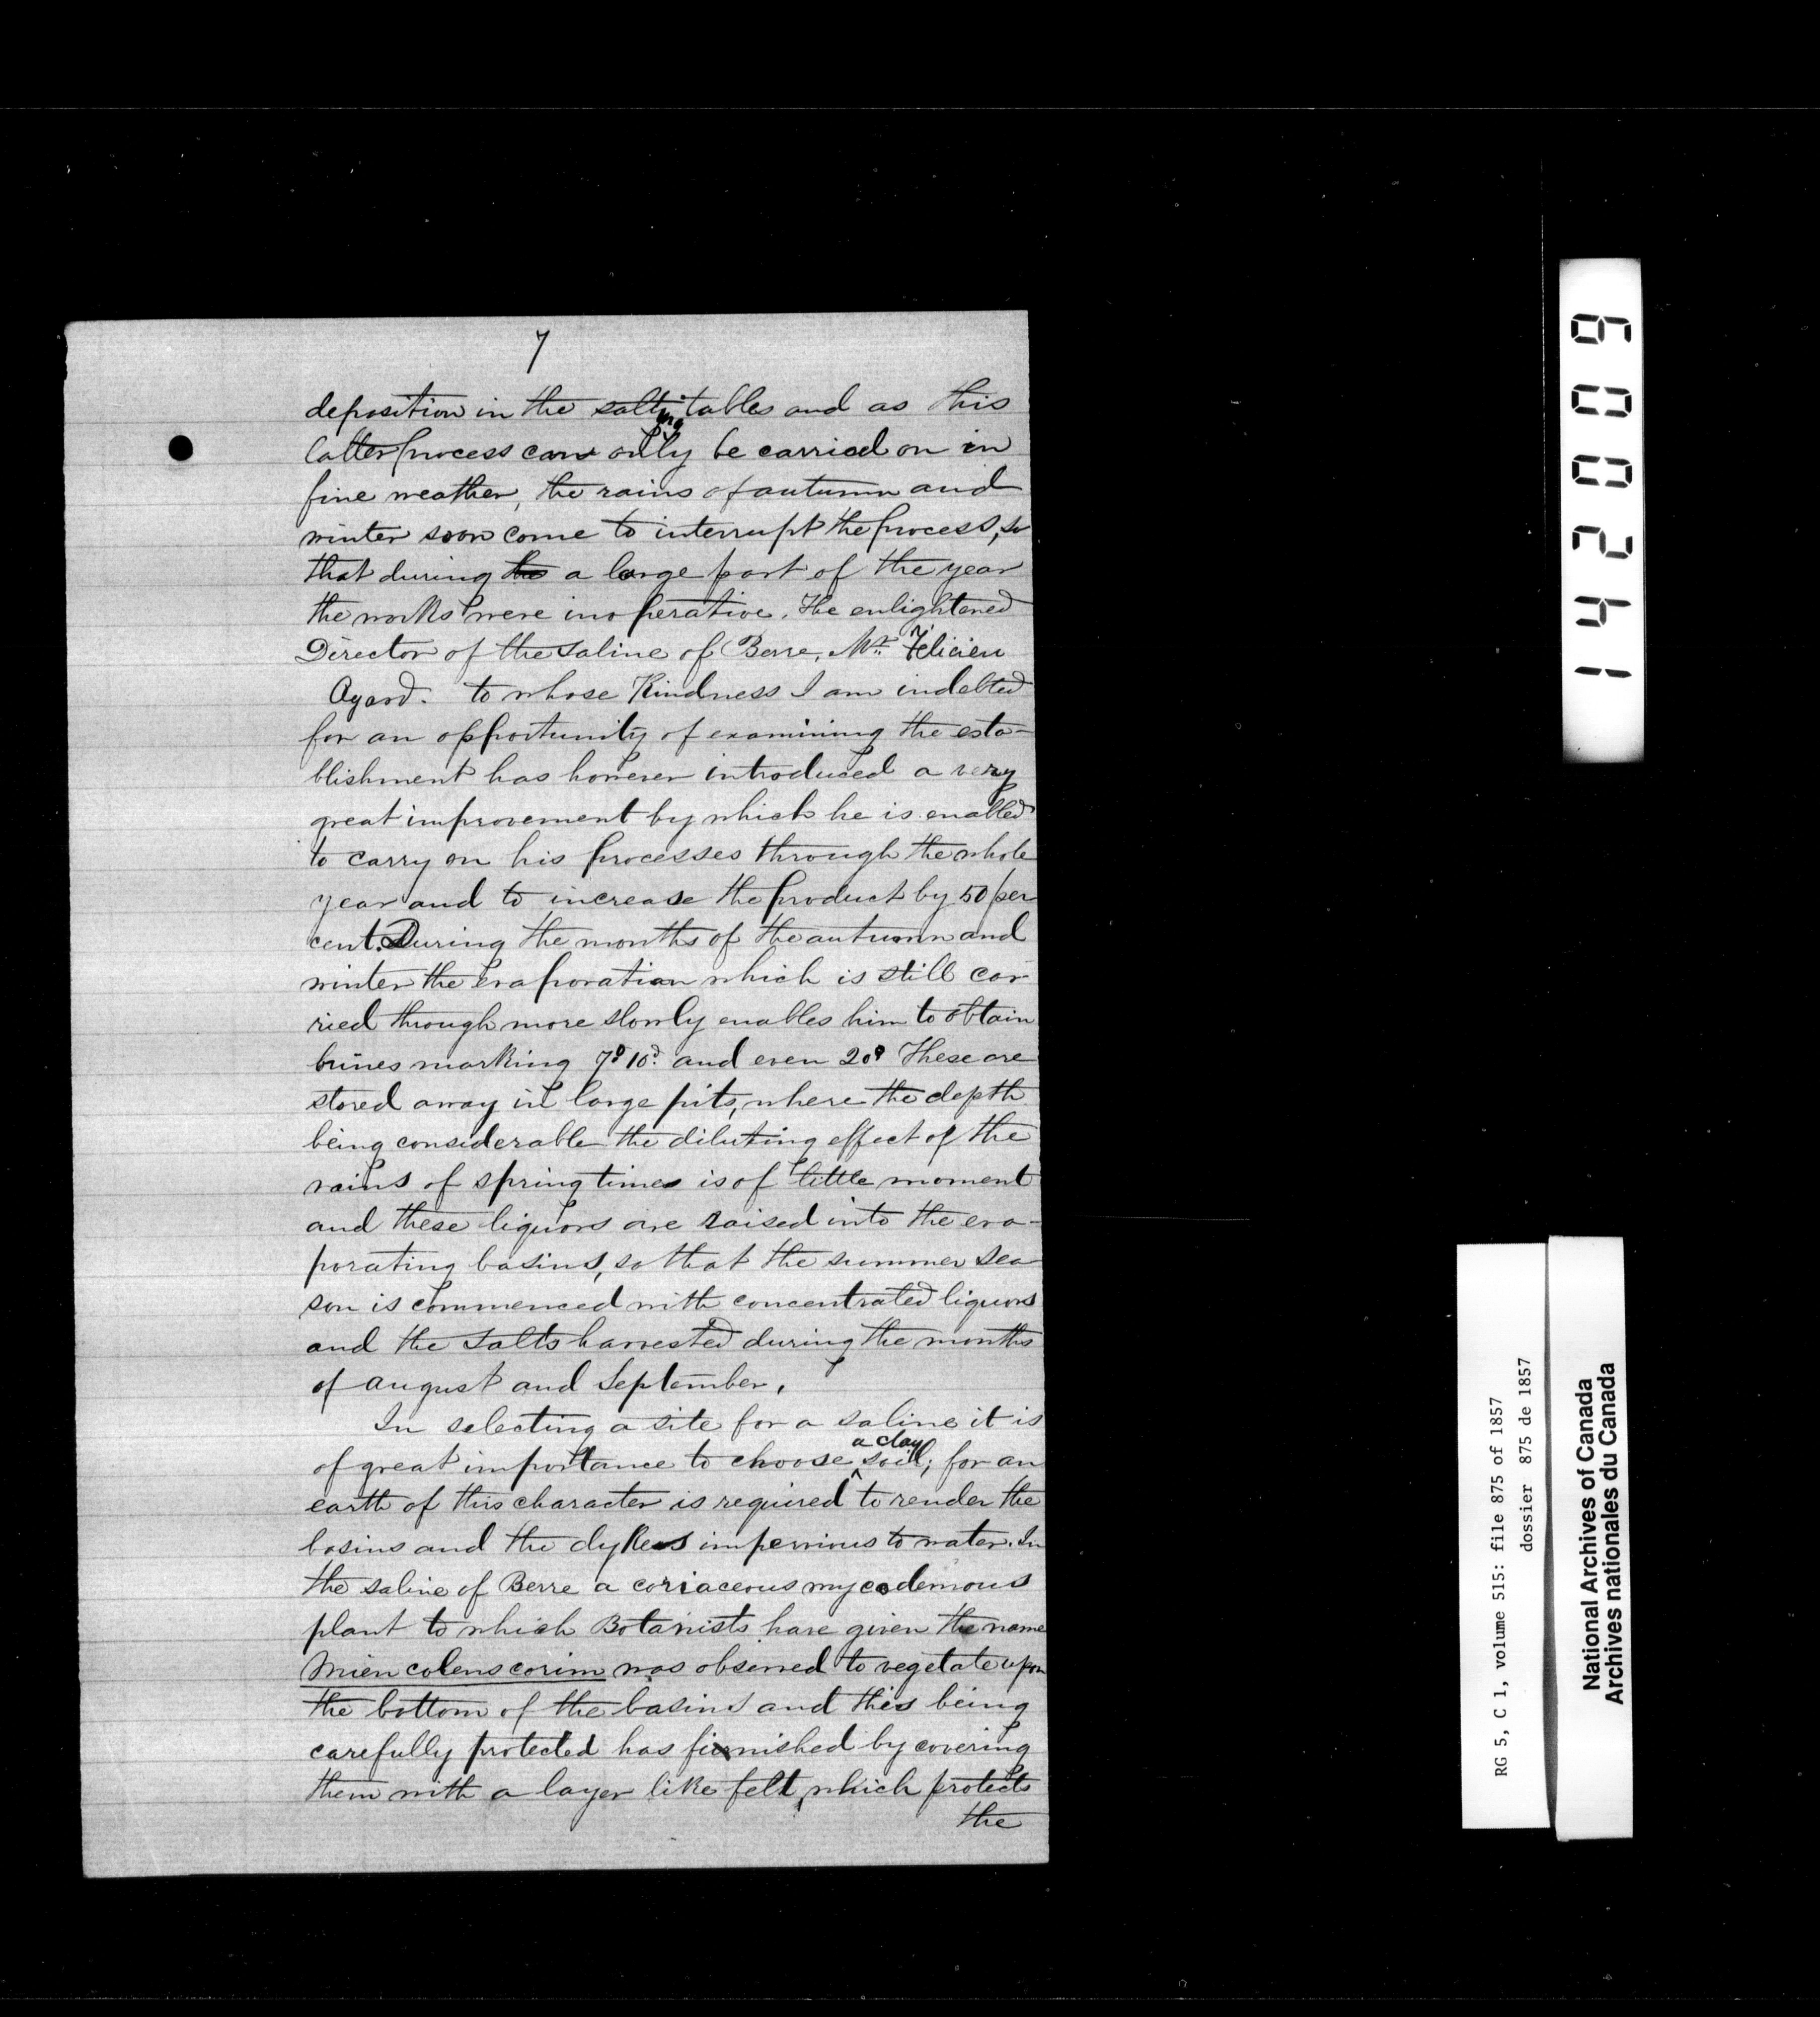 7
deposition in the salting tables and as this
latter process can only be carried on in
fine weather, the rains of autumn and
winter soon come to interrupt the process, so
that during the a large part of the year
the works were inoperative. The enlightened
Director of the saline of Berre, Mr. Félicien
Agard. to whose Kindness I am indebted
for an opportunity of examining the esta-
blishment has however introduced a very
great improvement by which he is enabled
to carry on his processes through the whole
year and to increase the product by 50 per
cent. During the months of the autumn and
winter the evaporation which is still car
ried through more slowly enables him to obtain
brines marking 7° 10° and even 20° These are
stored away in large pits, where the depth
being considerable the diluting effect of the
rains of spring times is of little moment
and these liquors are raised into the eva-
porating basins, so that the summer sea
son is commenced with concentrated liquors
and the salts harvested during the months
of august and September.
In selecting a site for a saline it is
of great importance to choose a clay soil; for an
earth of this character is required to render the
basins and the dykes impervious to water. In
the saline of Berre a coriaceous mycodemous
plant to which Botanists have given the name
Mien colens corim was observed to vegetate upon
the bottom of the basins and this being
carefully protected has finished by covering
them with a layer like felt, which protects
the
142009
RG 5, C 1, volume 515: file 875 of 1857
dossier 875 de 1857
National Archives of Canada
Archives nationales du Canada